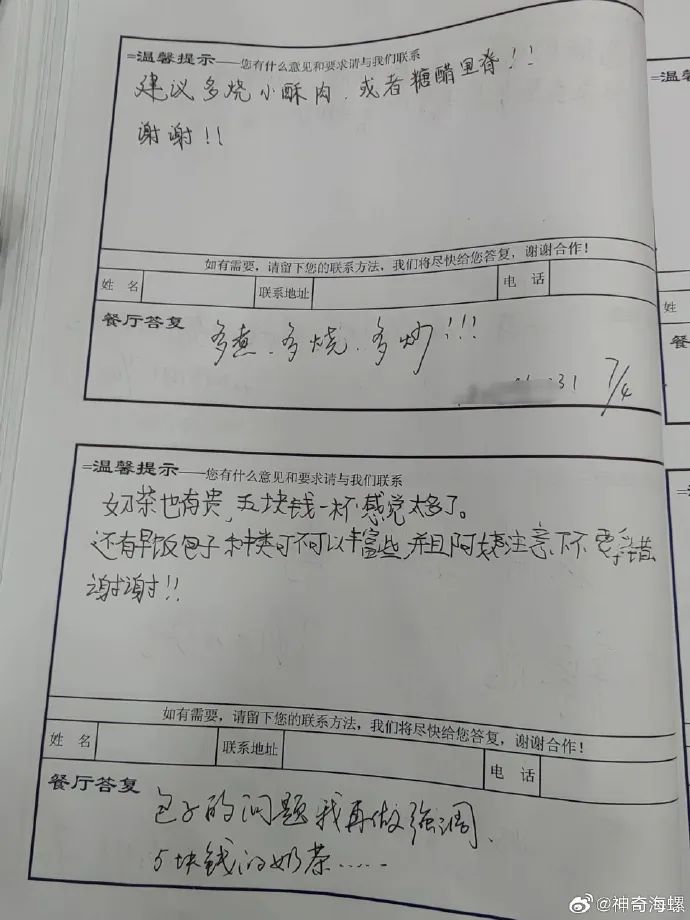 =温馨提示——您有什么意见和要求请与我们联系
建议多烧小酥肉、或者糖醋里脊!!
谢谢!!
如有需要，请留下您的联系方法，我们将尽快给您答复，谢谢合作！
姓 名 联系地址 电 话
餐厅答复
多煮、多烧、多炒!!!
31 7/4
=温馨提示——您有什么意见和要求请与我们联系
奶茶也有贵，五块钱一杯感觉太多了。
还有早饭包子种类可不可以丰富些，并且阿姨注意下不要拿错
谢谢!!
如有需要，请留下您的联系方法，我们将尽快给您答复，谢谢合作！
姓 名 联系地址 电 话
餐厅答复
包子的问题我再做强调、
5块钱的奶茶……
姓
@神奇海螺